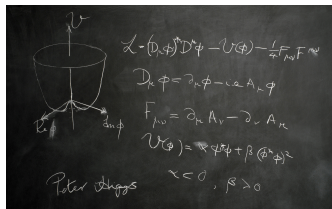 V
ℒ = (D_μ φ)* D^μ φ - V(φ) - ¼ F_μν F^μν
D_μ φ = ∂_μ φ - ieA_μ φ
F_μν = ∂_μ A_ν - ∂_ν A_μ
V(φ) = α φ*φ + β (φ*φ)²
α < 0, β > 0
Re φ
Im φ
Peter Higgs